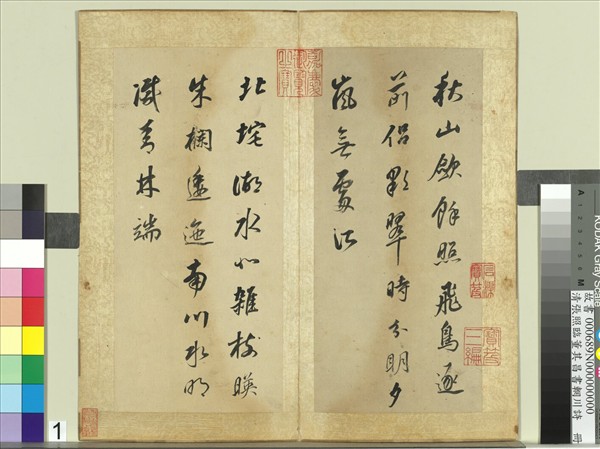 秋山斂餘照飛鳥逐
前侶彩翠時分明夕
嵐無處所
北垞湖水北雜樹暎
朱欄逶迤南川水明
滅青林端
嘉慶御覽之寶
石渠寶笈
寶笈三編
KODAK Gray Scale
A 1 2 3 4 5 6 M
故書 000689N000000000
清張照臨董其昌書輞川詩 冊
1